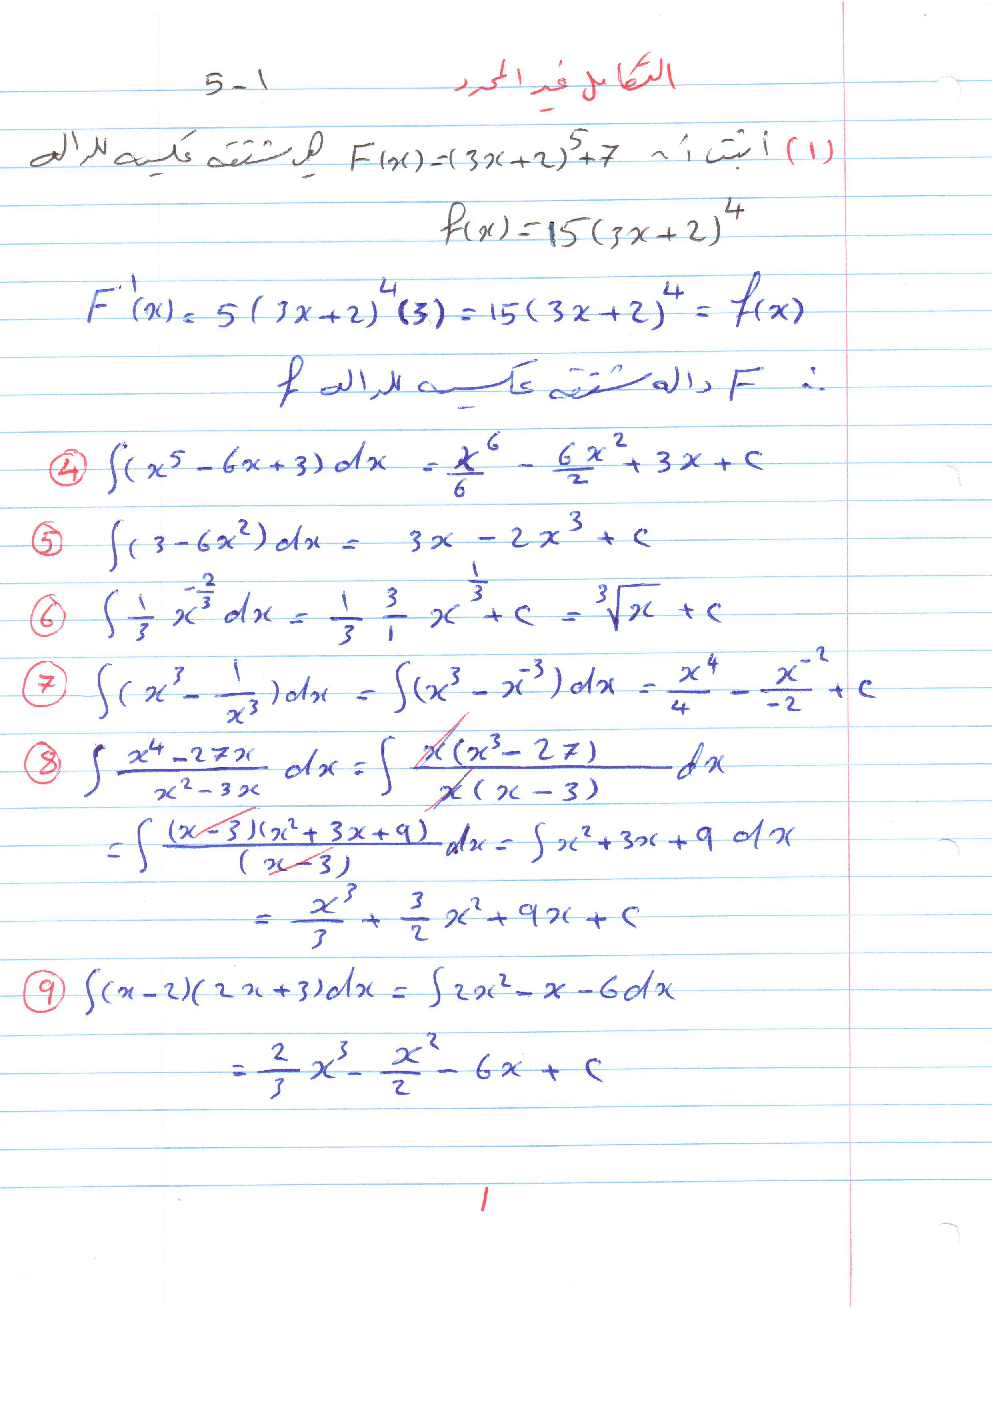 التكامل غير المحدد 5-1
(1) أثبت أن F(x)=(3x+2)^5+7 هي مشتقة عكسية للدالة
f(x)=15(3x+2)^4
F'(x)=5(3x+2)^4(3)=15(3x+2)^4=f(x)
∴ F دالة مشتقة عكسية للدالة f
④ ∫(x^5-6x+3)dx = x^6/6 - 6x^2/2 + 3x + c
⑤ ∫(3-6x^2)dx = 3x - 2x^3 + c
⑥ ∫ 1/3 x^(-2/3) dx = 1/3 3/1 x^(1/3) + c = ∛x + c
⑦ ∫(x^3 - 1/x^3)dx = ∫(x^3 - x^-3)dx = x^4/4 - x^-2/-2 + c
⑧ ∫ (x^4-27x)/(x^2-3x) dx = ∫ x(x^3-27)/x(x-3) dx
= ∫ (x-3)(x^2+3x+9)/(x-3) dx = ∫ x^2+3x+9 dx
= x^3/3 + 3/2 x^2 + 9x + c
⑨ ∫(x-2)(2x+3)dx = ∫2x^2-x-6dx
= 2/3 x^3 - x^2/2 - 6x + c
1